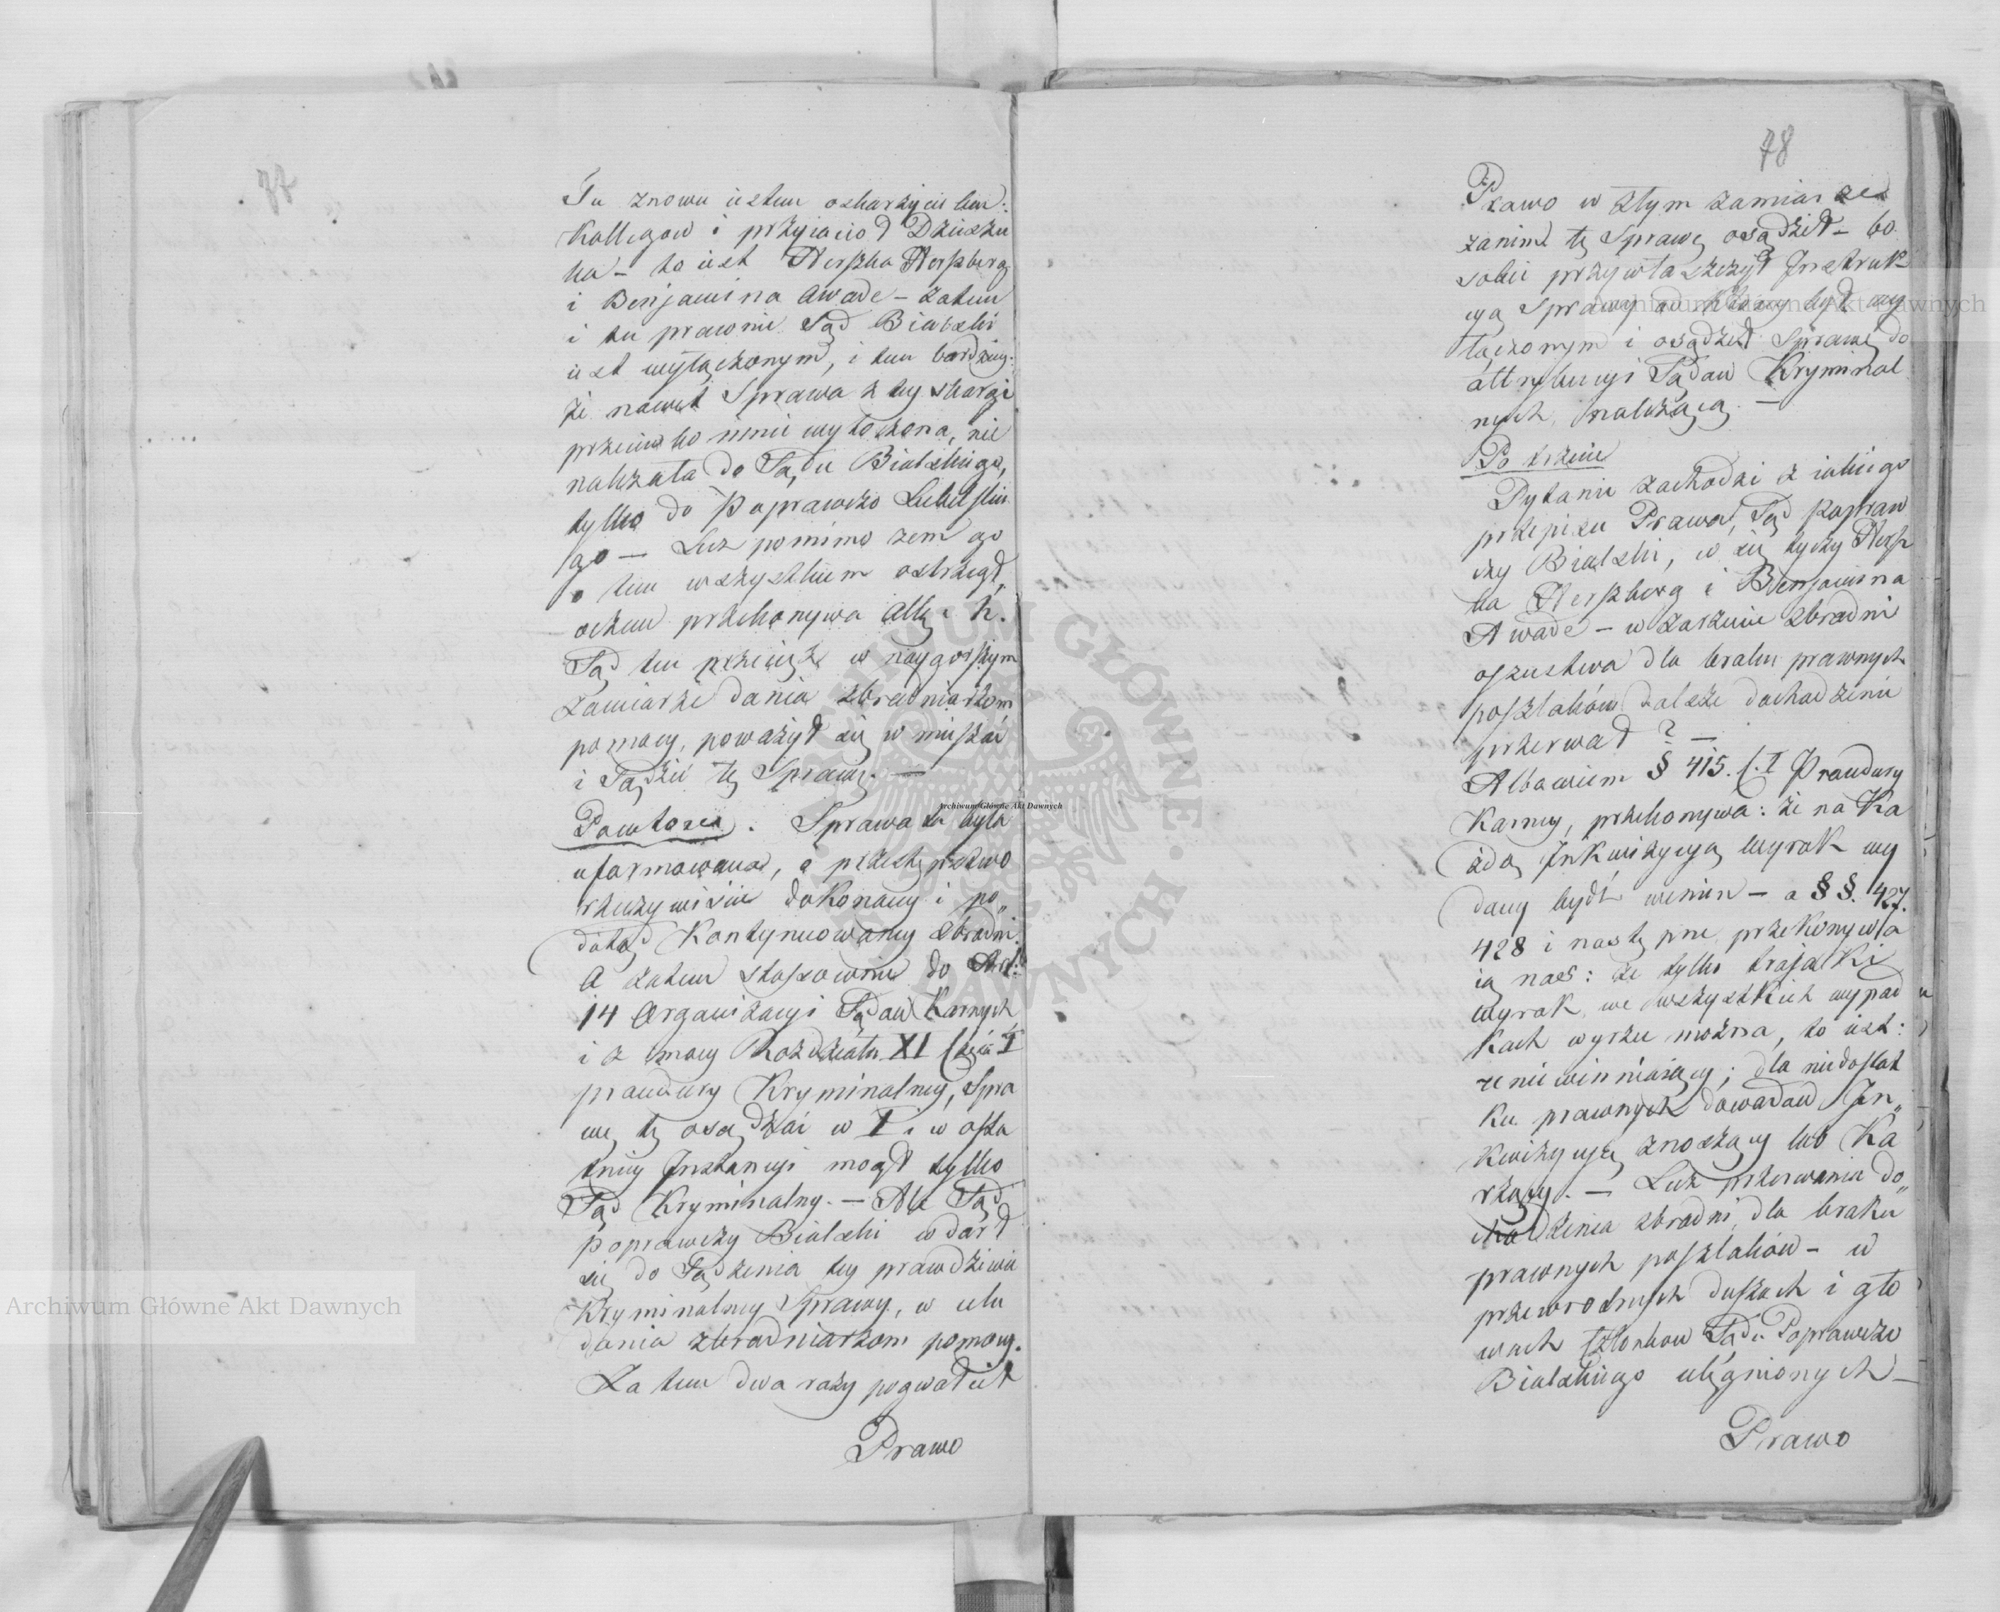 Tu znowu iestem oskarżycielem:
Kollegow i przyiacioł Dziecku
ka – to iest Herszka Herszberg
i Benjamina Awade – zatem
i tu prawnie Sąd Bialski
iest wyłączonym, i tem bardziey:
że nawet Sprawa z tey skargi
przeciwko mnie wytoczona, nie
należała do Sądu Bialskiego,
tylko do Poprawczo Lubelskie
go — Lecz pomimo żem go
o tem wszystkiem ostrzegł,
oczem przekonywa Akta K.
Sąd ten przecież w naygorszym
zamiarze dania zbrodniarzom
pomocy, poważył się wmięszać
i Sądzić tę Sprawę. —
Powtore. Sprawa ta była
uformowana, o przestępstwo
rzeczywiście dokonaney i po„
dotąd Kontynuowaney zbrodni.
A zatem stosownie do Art:
14 Organizacyi Sądow Karnych
i z mocy Rozdziału XI Części I
procedury Kryminalney, Spra
wę tę osądzać w I i w osta
tniey Instancyi mogł tylko
Sąd Kryminalny. — Ale Sąd
poprawczy Bialski wdarł
się do Sądzenia tey prawdziwie
Kryminalney Sprawy, w celu
dania zbrodniarzom pomocy.
Zatem dwa razy pogwałcił
Prawo
78
Prawo w złym zamiarze
zanim tę Sprawę osądził – bo
sobie przywłaszczył Instruk
cyą Sprawy od którey był wy
łączonym i osądził Sprawę do
attrybucyi Sądow Kryminal
nych należącą. —
Po trzecie
Pytanie zachodzi z iakiego
przepisu Prawa, Sąd popraw
czy Bialski, w się tyczy Hersz
ka Herszberg i Benjamina
Awade – w zarzucie zbrodni
oszustwa dla braku prawnych
poszlaków dalsze dochodzenie
przerwał ? —
Albowiem § 415. C. I Procedury
Karney, przekonywa: że na Ka
żdą Inkwizycyą wyrok wy
dany bydź winien – a §§. 427.
428 i następne przekonywa
ią nas: że tylko trojaki
wyrok we wszystkich wypad
kach wyrzec można, to iest:
uniewinniaiący; dla niedostat
ku prawnych dowodow In„
kwizycyę znoszący lub Ka
rzący. — Lecz przerwania do„
chodzenia zbrodni, dla braku
prawnych poszlaków – w
przewrotnych duszach i gło
wach Członkow Sądu Poprawczo
Bialskiego ulęgnionych –
Prawo
Archiwum Główne Akt Dawnych
Archiwum Główne Akt Dawnych
Archiwum Główne Akt Dawnych
ARCHIWUM GŁÓWNE AKT DAWNYCH